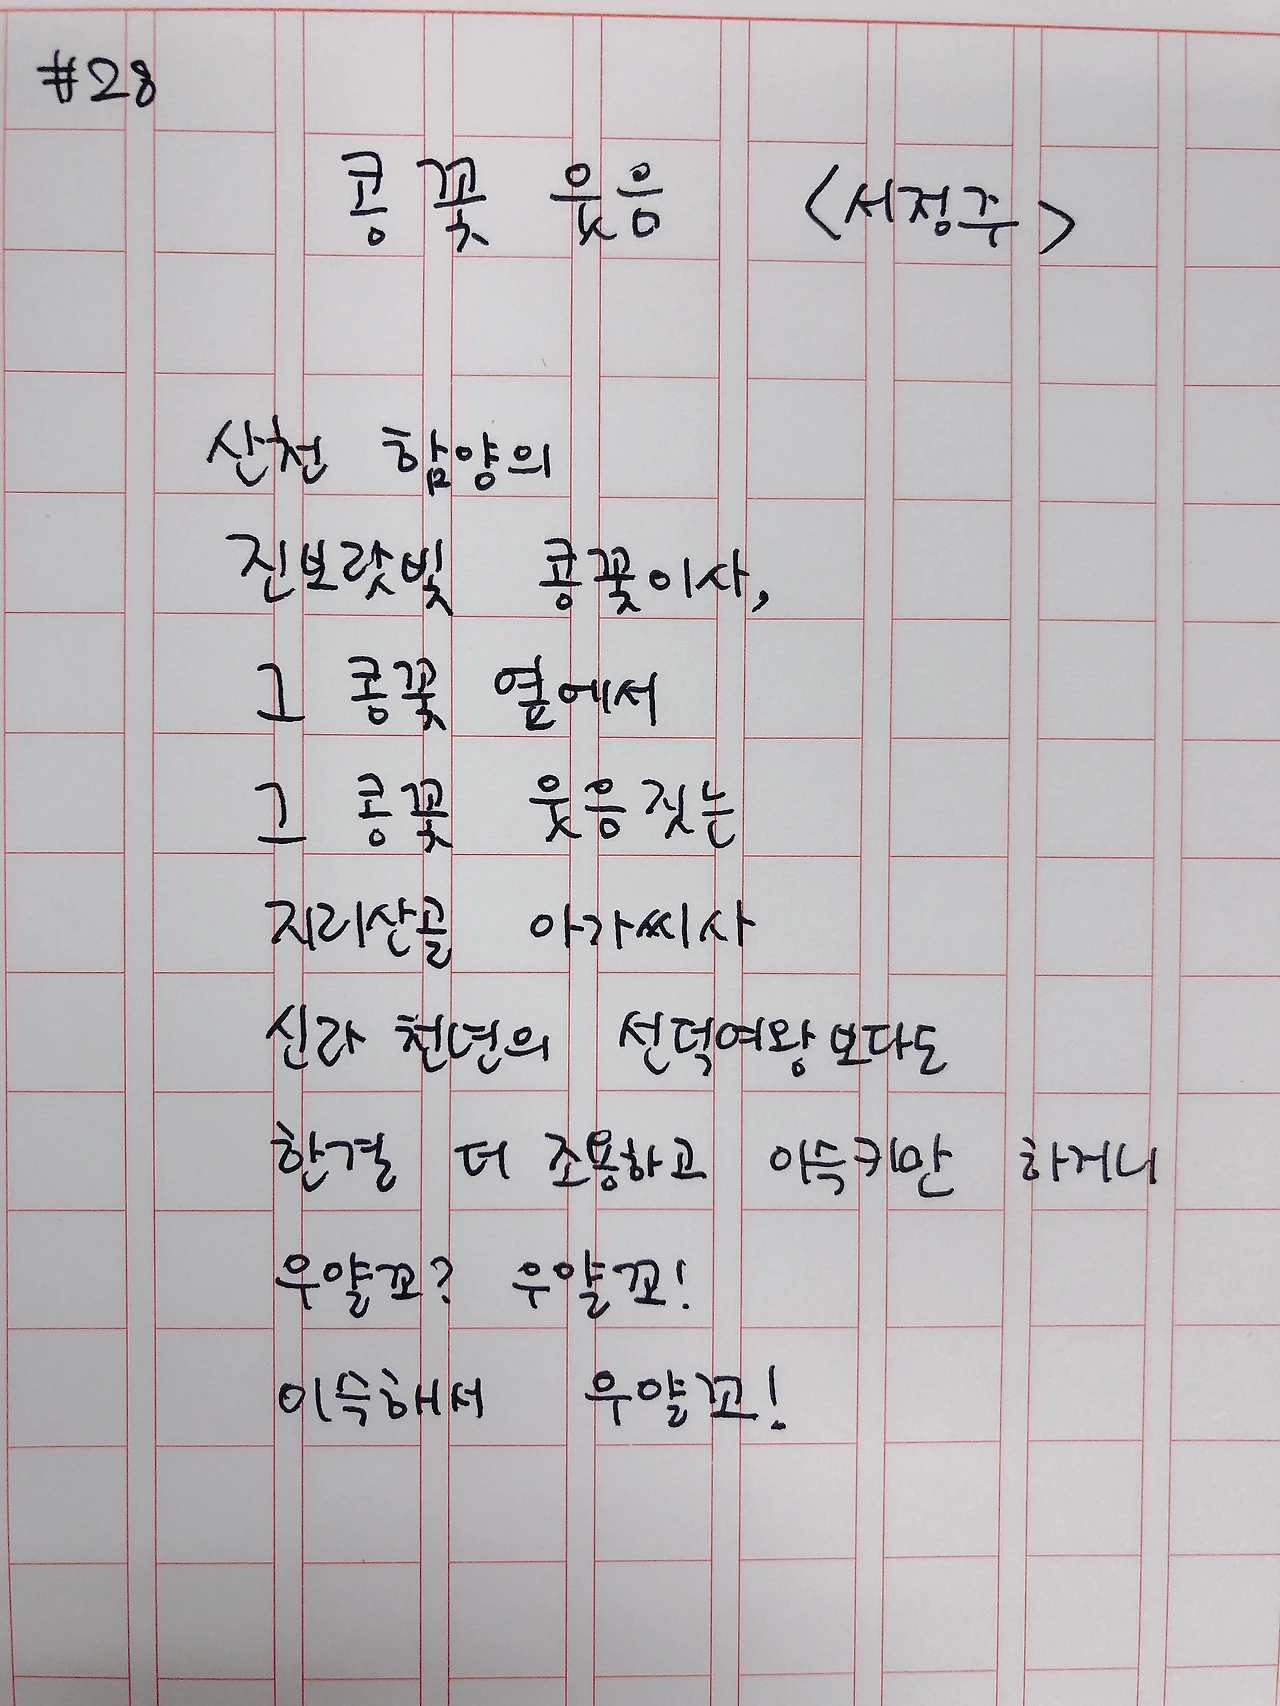 #28
콩 꽃 웃음 <서정주>
산천 함양의
진보랏빛 콩꽃이사,
그 콩꽃 옆에서
그 콩꽃 웃응짓는
지리산골 아가씨사
신라 천년의 선덕여왕보다도
한결 더 조용하고 이슥키만 하거니
우얄꼬? 우얄꼬!
이슥해서 우얄꼬!